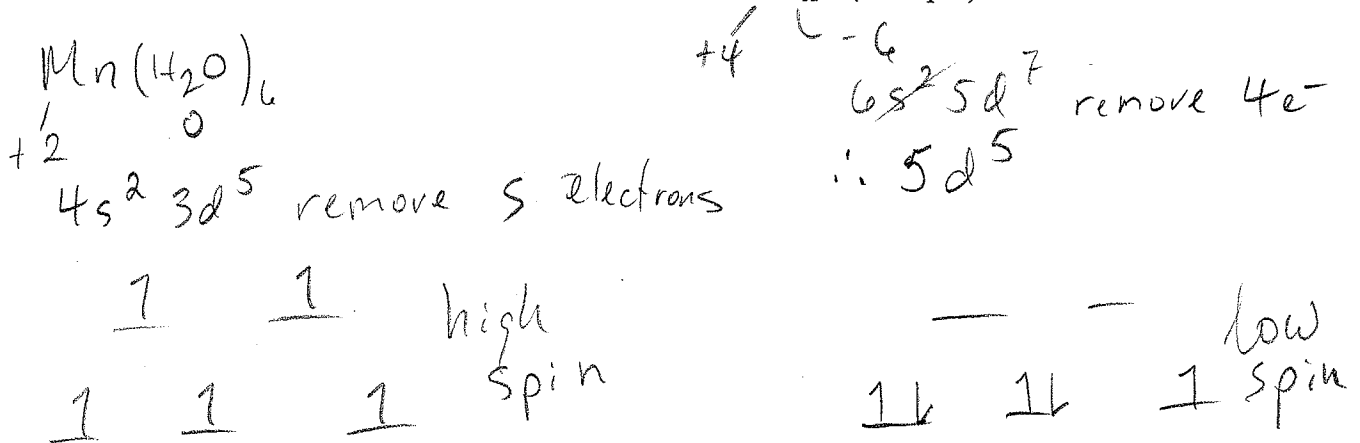 Mn(H₂O)₆
+2 0
4s² 3d⁵ remove s electrons
1 1 high
1 1 1 spin
+4 -6
6s² 5d⁷ remove 4e⁻
∴ 5d⁵
low
1⇂ 1⇂ 1 spin